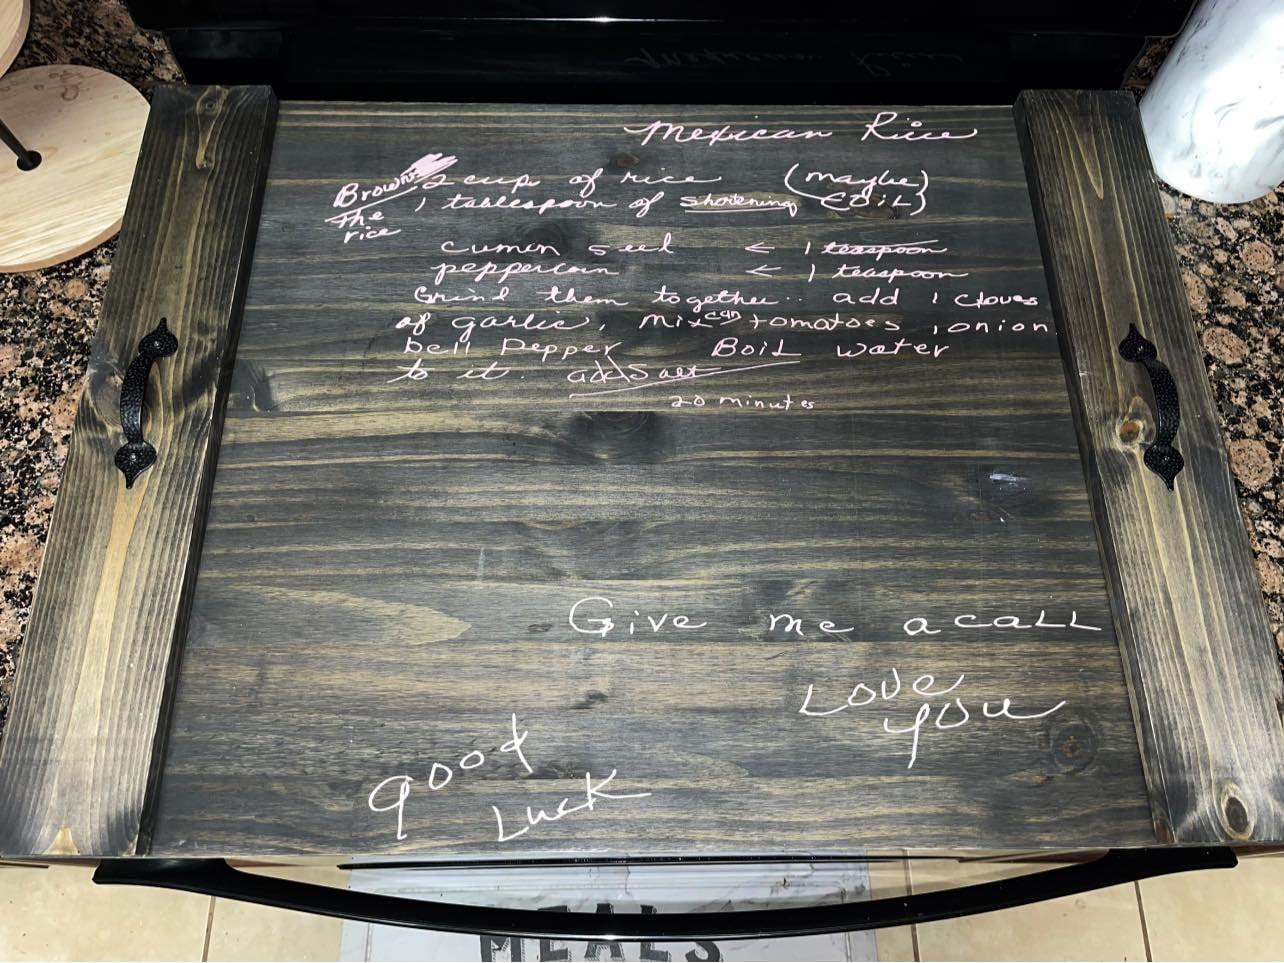 Mexican Rice
Brown 2 cup of rice (maybe)
The 1 tablespoon of shortening (OIL)
rice
cumin seed ← 1 teaspoon
peppercorn ← 1 teaspoon
Grind them together.. add 1 cloves
of garlic, mix can tomatoes, onion
bell pepper BOIL water
to it. add salt
20 minutes
Give me a call
Love
you
good
Luck
MEALS